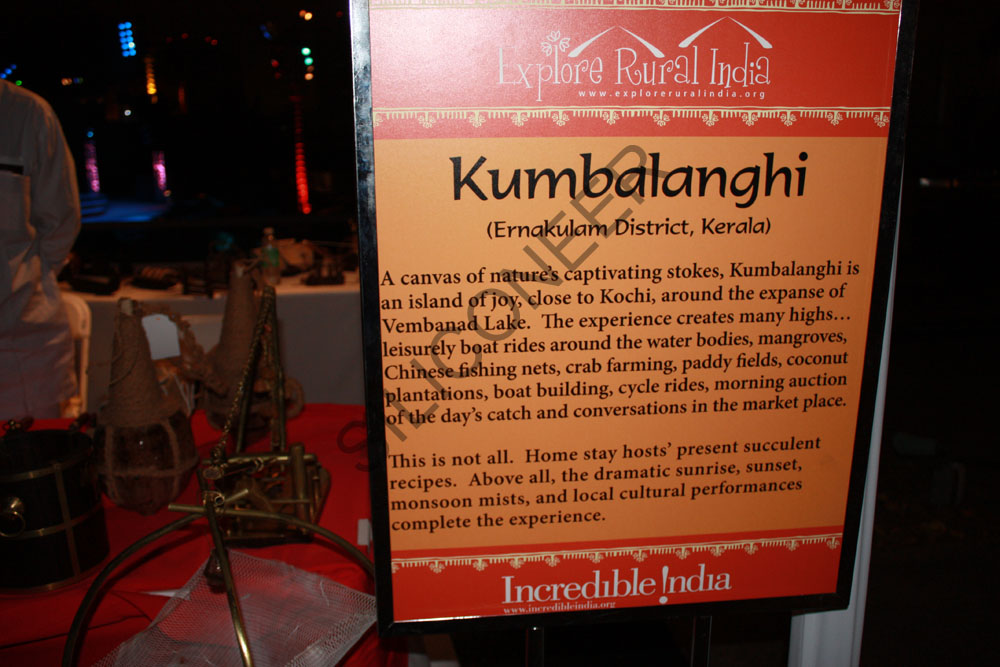 Explore Rural India
www.exploreruralindia.org
Kumbalanghi
(Ernakulam District, Kerala)
A canvas of nature's captivating stokes, Kumbalanghi is
an island of joy, close to Kochi, around the expanse of
Vembanad Lake. The experience creates many highs...
leisurely boat rides around the water bodies, mangroves,
Chinese fishing nets, crab farming, paddy fields, coconut
plantations, boat building, cycle rides, morning auction
of the day's catch and conversations in the market place.
This is not all. Home stay hosts' present succulent
recipes. Above all, the dramatic sunrise, sunset,
monsoon mists, and local cultural performances
complete the experience.
Incredible !ndia
www.incredibleindia.org
SILICONEER